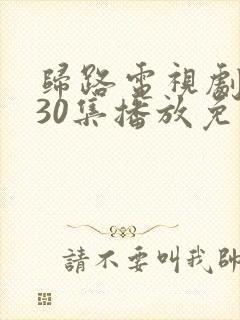 歸路電視劇
30集播放免
請不要叫我帥